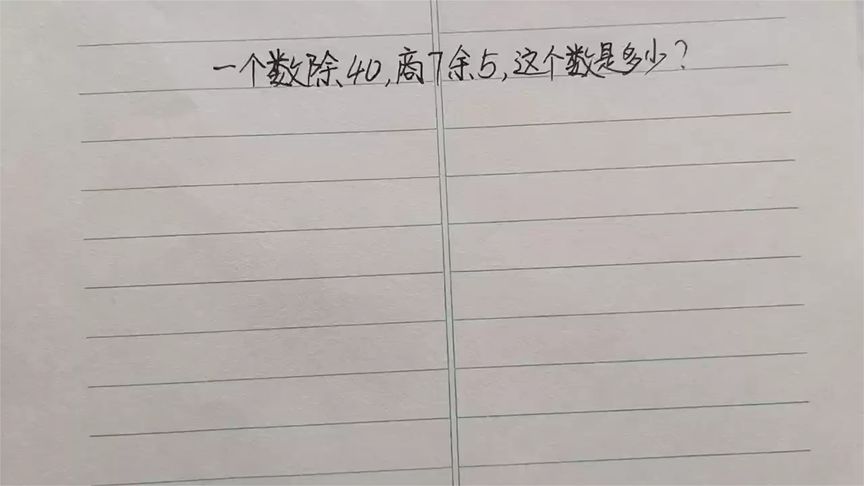 一个数除40,商7余5,这个数是多少?